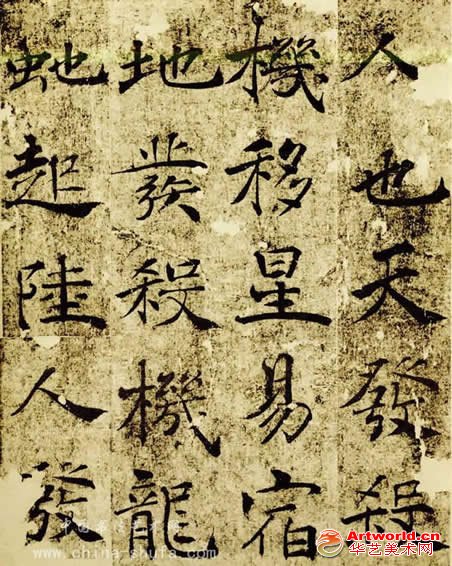 人也天發殺
機移星易宿
地發殺機龍
虵起陸人發
中国书法艺术网
www.china-shufa.com
Artworld.cn
华艺美术网